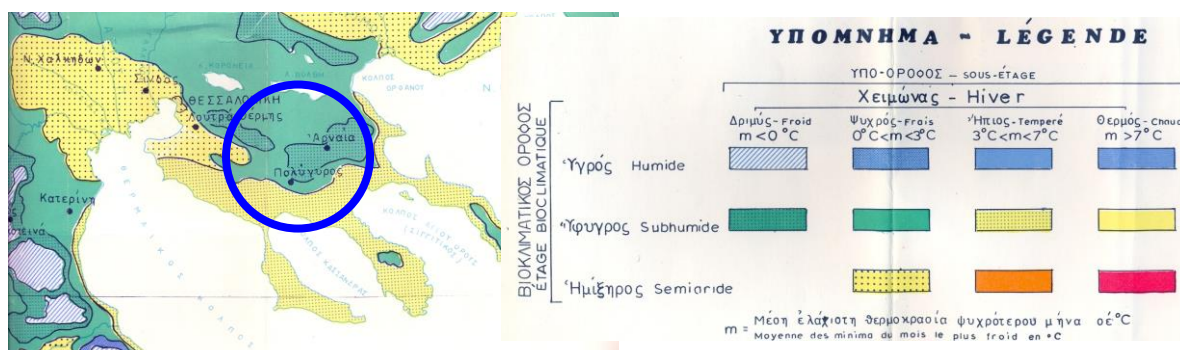 Ν. Χαλκηδών
Σίνδος
ΘΕΣΣΑΛΟΝΙΚΗ
Λουτρά Θέρμης
Λ. ΚΟΡΩΝΕΙΑ
Λ. ΒΟΛΒΗ
ΚΟΛΠΟΣ
ΟΡΦΑΝΟΥ
Ν
Ἀρναία
Πολύγυρος
Κατερίνη
ΘΕΡΜΑΙΚΟΣ ΚΟΛΠΟΣ
ΚΟΛΠΟΣ ΚΑΣΣΑΝΔΡΑΣ
ΚΟΛΠΟΣ ΑΓΙΟΥ ΟΡΟΥΣ
(ΣΙΓΓΙΤΙΚΟΣ)
ΥΠΟΜΝΗΜΑ - LÉGENDE
ΥΠΟ-ΟΡΟΦΟΣ - SOUS-ÉTAGE
Χειμώνας - Hiver
Δριμύς-Froid Ψυχρός-Frais Ἤπιος-Temperé Θερμός-Chaud
m<0°C 0°C<m<3°C 3°C<m<7°C m>7°C
ΒΙΟΚΛΙΜΑΤΙΚΟΣ ΟΡΟΦΟΣ
ÉTAGE BIOCLIMATIQUE
Ὑγρός Humide
Ὕφυγρος Subhumide
Ἡμίξηρος Semiaride
m = Μέση ἐλάχιστη θερμοκρασία ψυχρότερου μήνα σέ °C
Moyenne des minima du mois le plus froid en °C